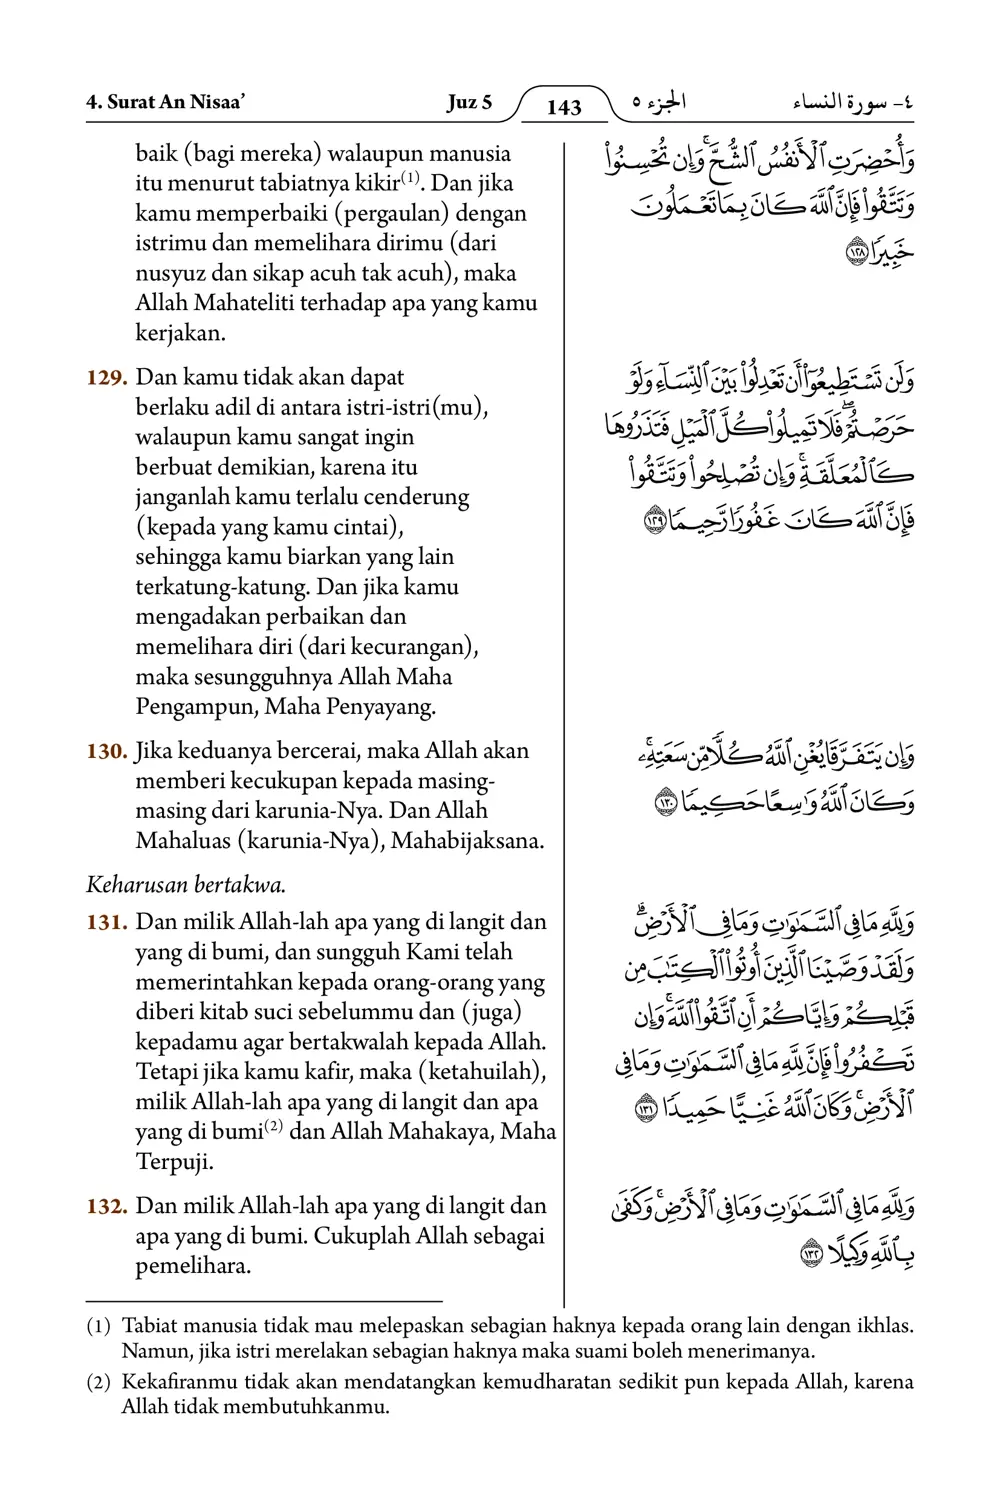 4. Surat An Nisaa’ Juz 5 143 الجزء ٥ ٤- سورة النساء
baik (bagi mereka) walaupun manusia
itu menurut tabiatnya kikir(1). Dan jika
kamu memperbaiki (pergaulan) dengan
istrimu dan memelihara dirimu (dari
nusyuz dan sikap acuh tak acuh), maka
Allah Mahateliti terhadap apa yang kamu
kerjakan.
وَأُحْضِرَتِ ٱلْأَنفُسُ ٱلشُّحَّ ۚ وَإِن تُحْسِنُوا۟
وَتَتَّقُوا۟ فَإِنَّ ٱللَّهَ كَانَ بِمَا تَعْمَلُونَ
خَبِيرًا ١٢٨
129. Dan kamu tidak akan dapat
berlaku adil di antara istri-istri(mu),
walaupun kamu sangat ingin
berbuat demikian, karena itu
janganlah kamu terlalu cenderung
(kepada yang kamu cintai),
sehingga kamu biarkan yang lain
terkatung-katung. Dan jika kamu
mengadakan perbaikan dan
memelihara diri (dari kecurangan),
maka sesungguhnya Allah Maha
Pengampun, Maha Penyayang.
وَلَن تَسْتَطِيعُوٓا۟ أَن تَعْدِلُوا۟ بَيْنَ ٱلنِّسَآءِ وَلَوْ
حَرَصْتُمْ ۖ فَلَا تَمِيلُوا۟ كُلَّ ٱلْمَيْلِ فَتَذَرُوهَا
كَٱلْمُعَلَّقَةِ ۚ وَإِن تُصْلِحُوا۟ وَتَتَّقُوا۟
فَإِنَّ ٱللَّهَ كَانَ غَفُورًا رَّحِيمًا ١٢٩
130. Jika keduanya bercerai, maka Allah akan
memberi kecukupan kepada masing-
masing dari karunia-Nya. Dan Allah
Mahaluas (karunia-Nya), Mahabijaksana.
وَإِن يَتَفَرَّقَا يُغْنِ ٱللَّهُ كُلًّا مِّن سَعَتِهِۦ ۚ
وَكَانَ ٱللَّهُ وَٰسِعًا حَكِيمًا ١٣٠
Keharusan bertakwa.
131. Dan milik Allah-lah apa yang di langit dan
yang di bumi, dan sungguh Kami telah
memerintahkan kepada orang-orang yang
diberi kitab suci sebelummu dan (juga)
kepadamu agar bertakwalah kepada Allah.
Tetapi jika kamu kafir, maka (ketahuilah),
milik Allah-lah apa yang di langit dan apa
yang di bumi(2) dan Allah Mahakaya, Maha
Terpuji.
وَلِلَّهِ مَا فِى ٱلسَّمَٰوَٰتِ وَمَا فِى ٱلْأَرْضِ ۗ
وَلَقَدْ وَصَّيْنَا ٱلَّذِينَ أُوتُوا۟ ٱلْكِتَٰبَ مِن
قَبْلِكُمْ وَإِيَّاكُمْ أَنِ ٱتَّقُوا۟ ٱللَّهَ ۚ وَإِن
تَكْفُرُوا۟ فَإِنَّ لِلَّهِ مَا فِى ٱلسَّمَٰوَٰتِ وَمَا فِى
ٱلْأَرْضِ ۚ وَكَانَ ٱللَّهُ غَنِيًّا حَمِيدًا ١٣١
132. Dan milik Allah-lah apa yang di langit dan
apa yang di bumi. Cukuplah Allah sebagai
pemelihara.
وَلِلَّهِ مَا فِى ٱلسَّمَٰوَٰتِ وَمَا فِى ٱلْأَرْضِ ۚ وَكَفَىٰ
بِٱللَّهِ وَكِيلًا ١٣٢
(1) Tabiat manusia tidak mau melepaskan sebagian haknya kepada orang lain dengan ikhlas.
Namun, jika istri merelakan sebagian haknya maka suami boleh menerimanya.
(2) Kekafiranmu tidak akan mendatangkan kemudharatan sedikit pun kepada Allah, karena
Allah tidak membutuhkanmu.